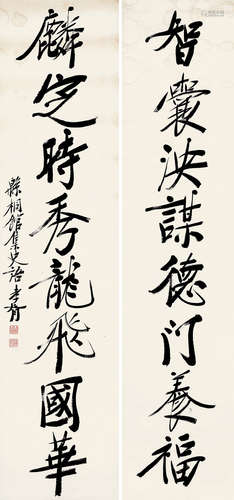 智囊決謀德門養福
麟定時秀龍飛國華
縣桐館集史語